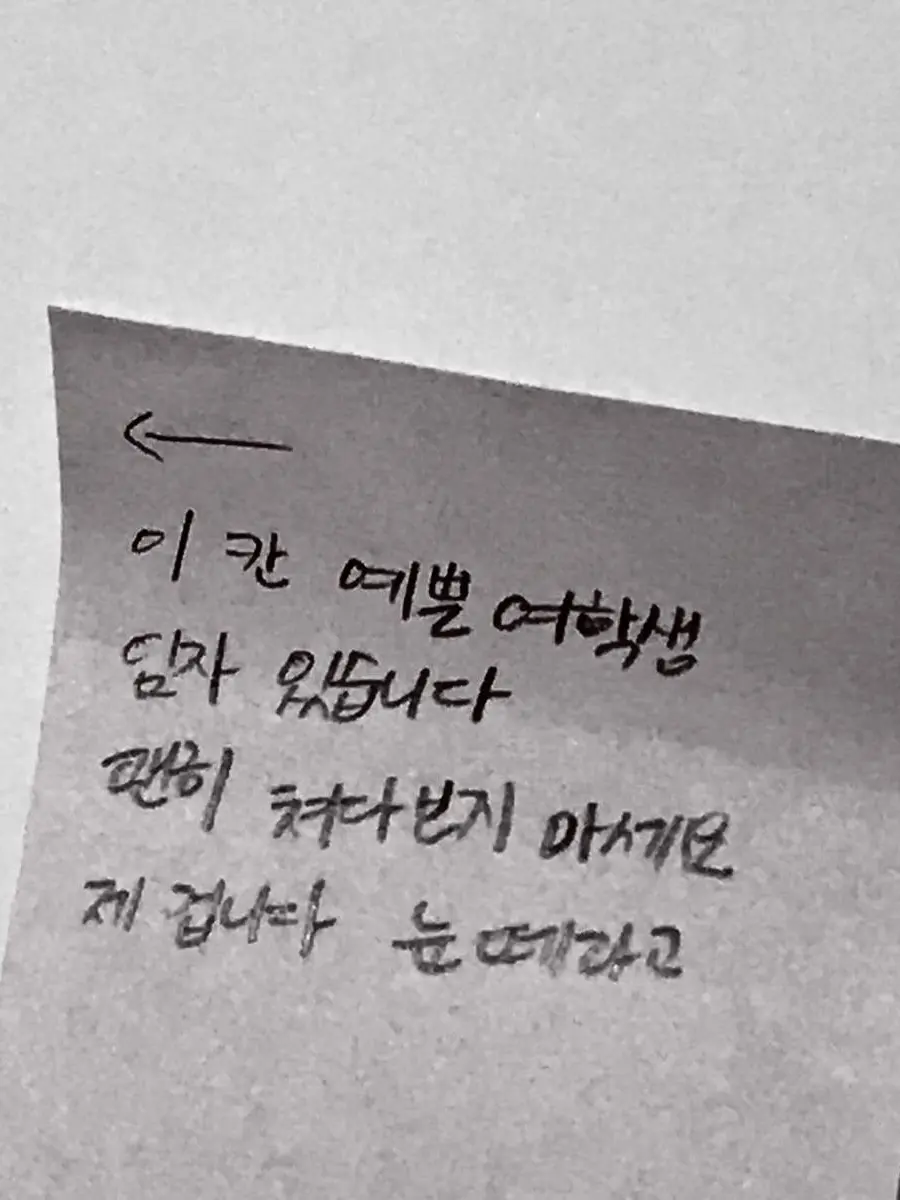 ←
이 칸 예쁜 여학생
임자 있습니다
괜히 쳐다보지 마세요
제 겁니다 눈 떼라고